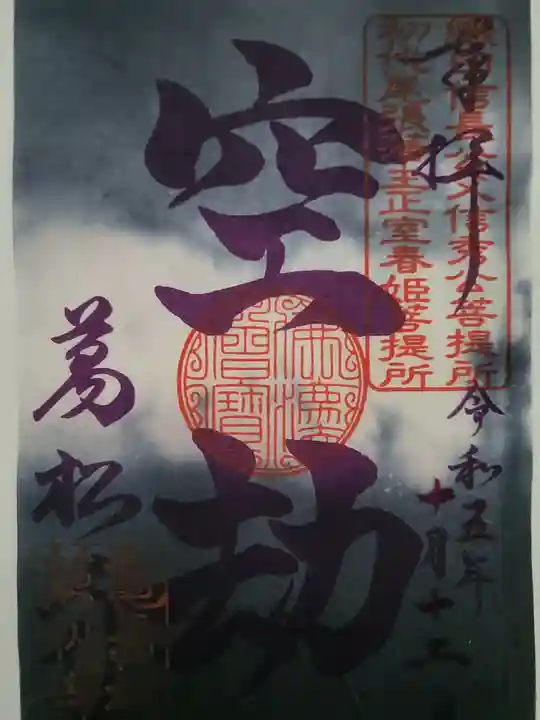 奉拝
織田信長公父信秀公菩提所
初代尾張藩主正室春姫菩提所
令和五年
十月十二
空劫
佛法僧寶
萬松